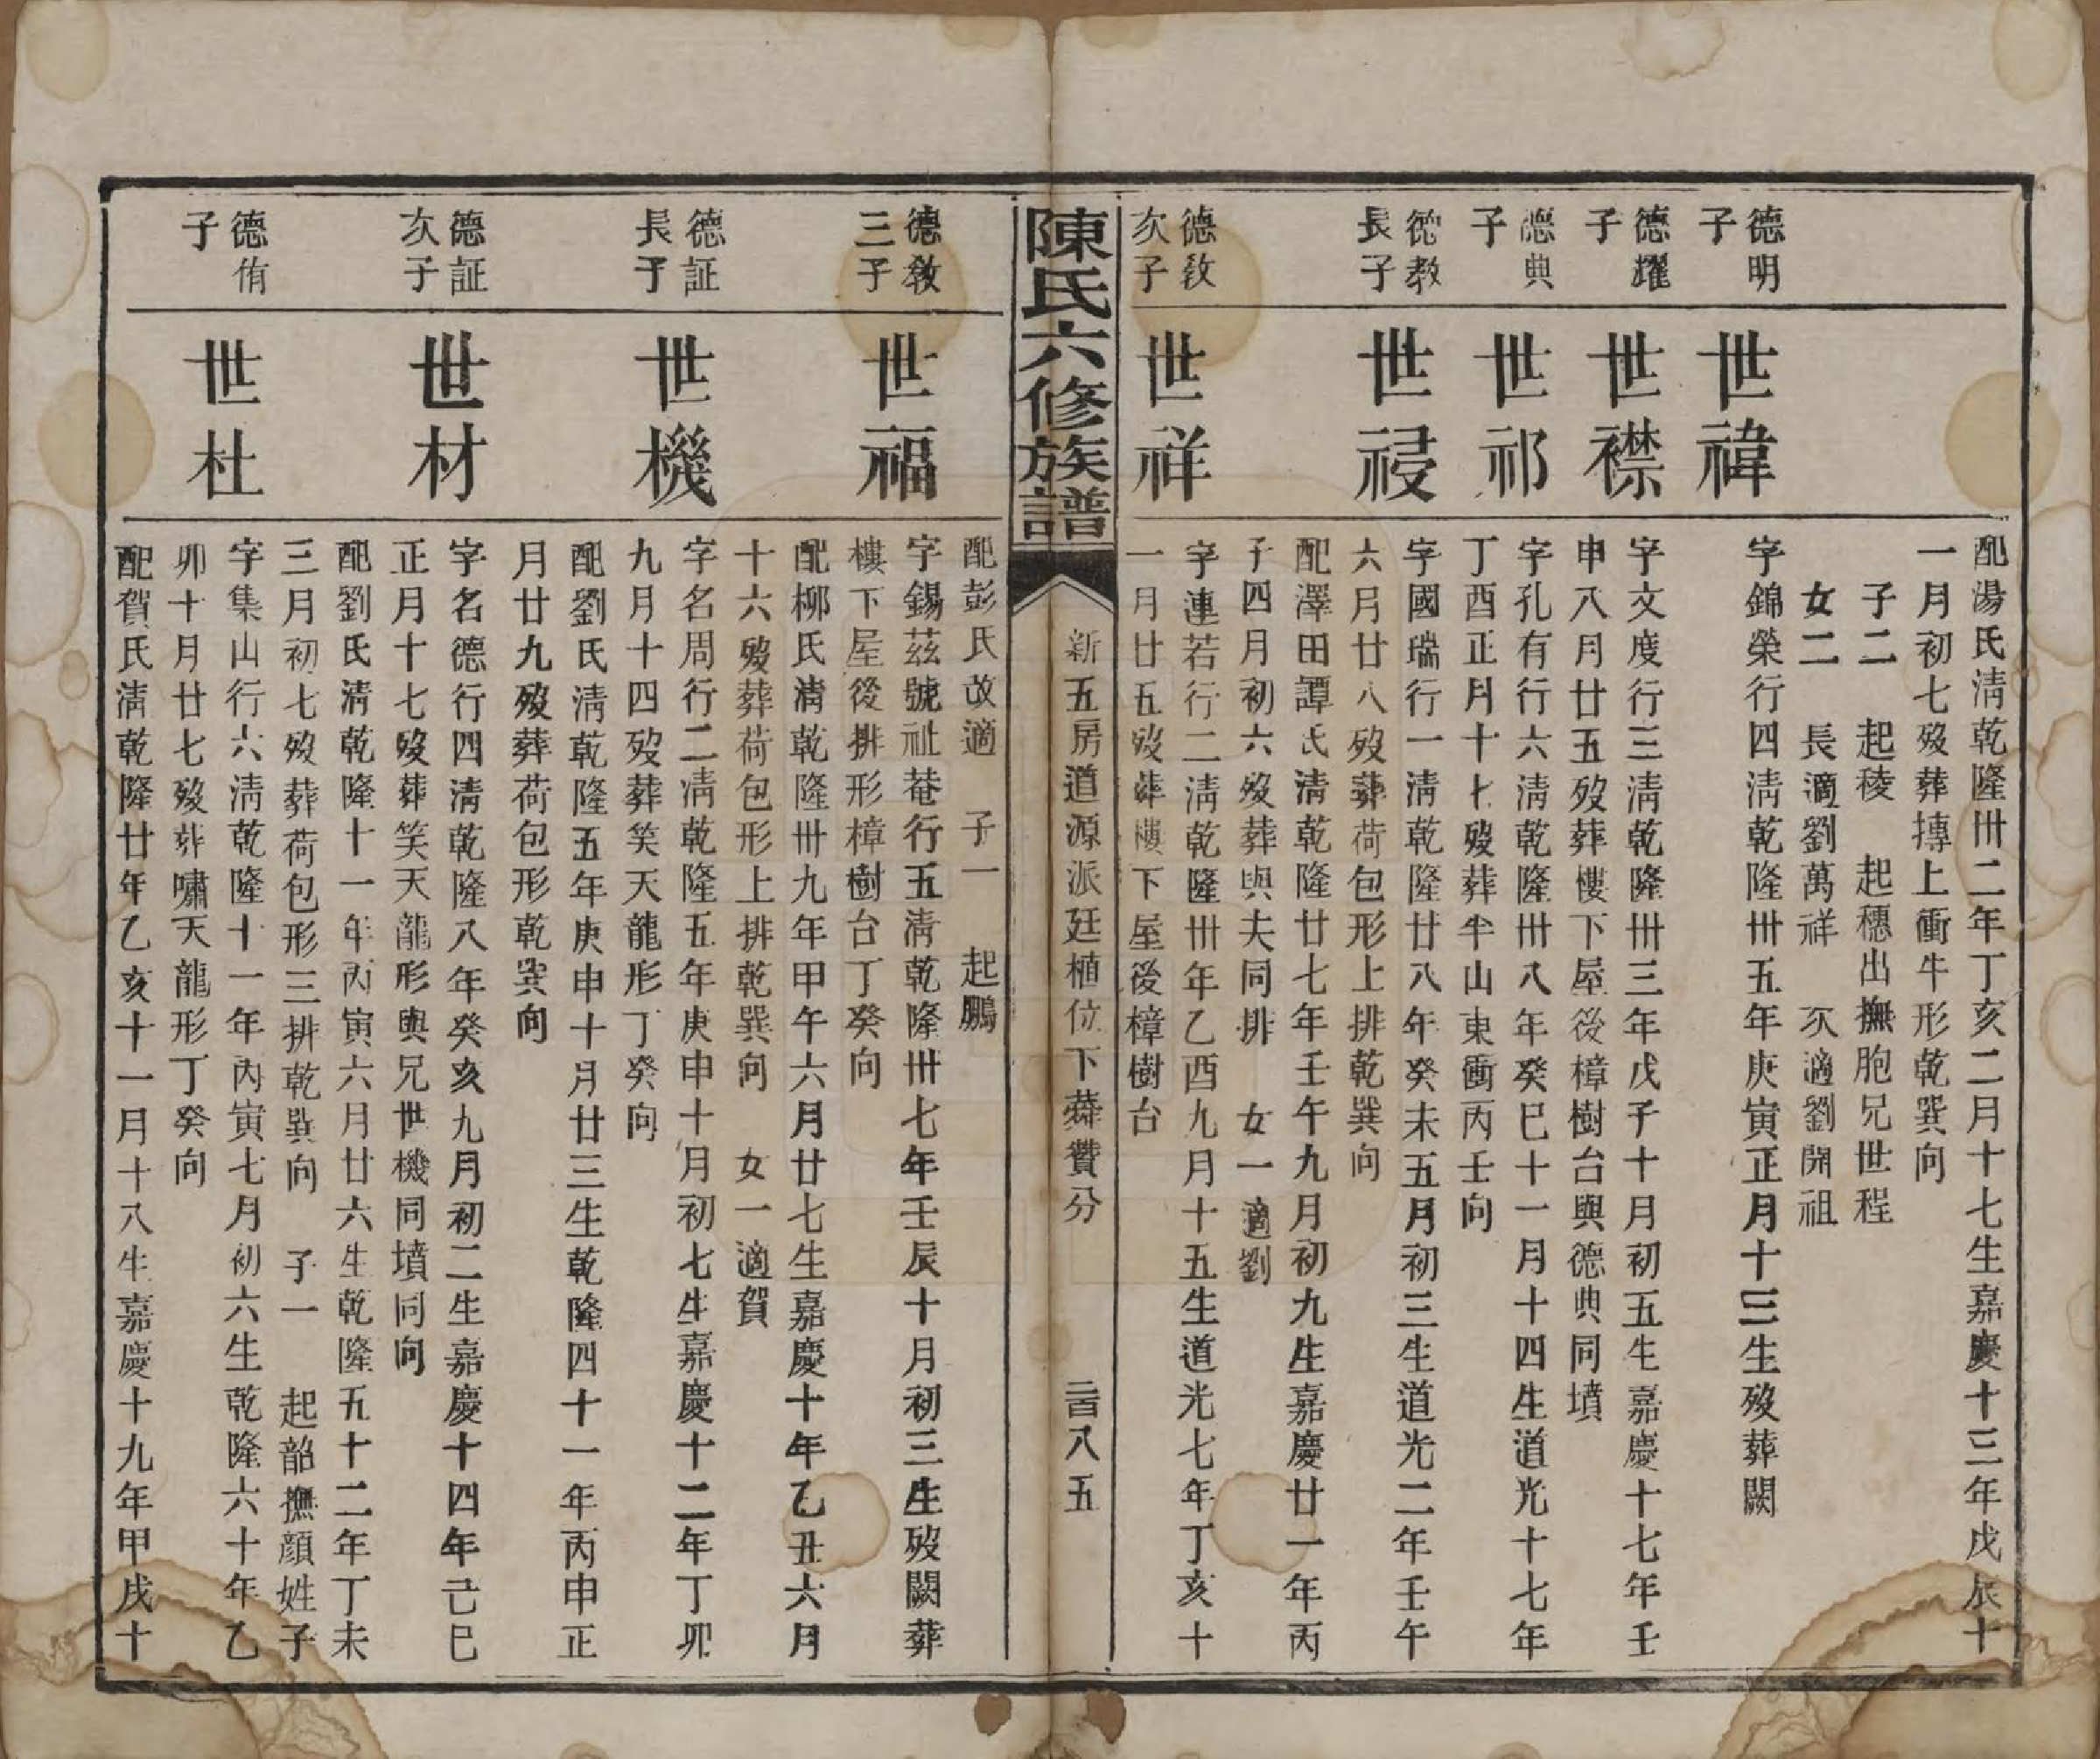 配湯氏清乾隆卅二年丁亥二月十七生嘉慶十三年戊辰十
一月初七歿葬摶上衝牛形乾巽向
子二　起稜　起穗出撫胞兄世程
女二　長適劉萬祥　次適劉開祖
德明
子
世禕
字錦榮行四清乾隆卅五年庚寅正月十三生歿葬闕
德耀
子
世襟
字文度行三清乾隆卅三年戊子十月初五生嘉慶十七年壬
申八月廿五歿葬樓下屋後樟樹台與德典同墳
德典
子
世祁
字孔有行六清乾隆卅八年癸巳十一月十四生道光十七年
丁酉正月十七歿葬半山東衝丙壬向
德教
長子
世祲
字國瑞行一清乾隆廿八年癸未五月初三生道光二年壬午
六月廿八歿葬荷包形上排乾巽向
配澤田譚氏清乾隆廿七年壬午九月初九生嘉慶廿一年丙
子四月初六歿葬與夫同排　女一適劉
德敎
次子
世祥
字連若行二清乾隆卅年乙酉九月十五生道光七年丁亥十
一月廿五歿葬樓下屋後樟樹台
陳氏六修族譜
新五房道源派廷植位下蕣贊分
二百八五
配彭氏改適　子一　起鵬
德敎
三子
世福
字錫茲號祉菴行五清乾隆卅七年壬辰十月初三生歿闕葬
樓下屋後排形樟樹台丁癸向
配柳氏清乾隆卅九年甲午六月廿七生嘉慶十年乙丑六月
十六歿葬荷包形上排乾巽向　女一適賀
德証
長子
世機
字名周行二清乾隆五年庚申十月初七生嘉慶十二年丁卯
九月十四歿葬笑天龍形丁癸向
配劉氏清乾隆五年庚申十月廿三生乾隆四十一年丙申正
月廿九歿葬荷包形乾巽向
德証
次子
世材
字名德行四清乾隆八年癸亥九月初二生嘉慶十四年己巳
正月十七歿葬笑天龍形與兄世機同墳同向
配劉氏清乾隆十一年丙寅六月廿六生乾隆五十二年丁未
三月初七歿葬荷包形三排乾巽向　子一　起韶撫顏姓子
德侑
子
世杜
字集山行六清乾隆十一年丙寅七月初六生乾隆六十年乙
卯十月廿七歿葬嘯天龍形丁癸向
配賀氏清乾隆廿年乙亥十一月十八生嘉慶十九年甲戌十